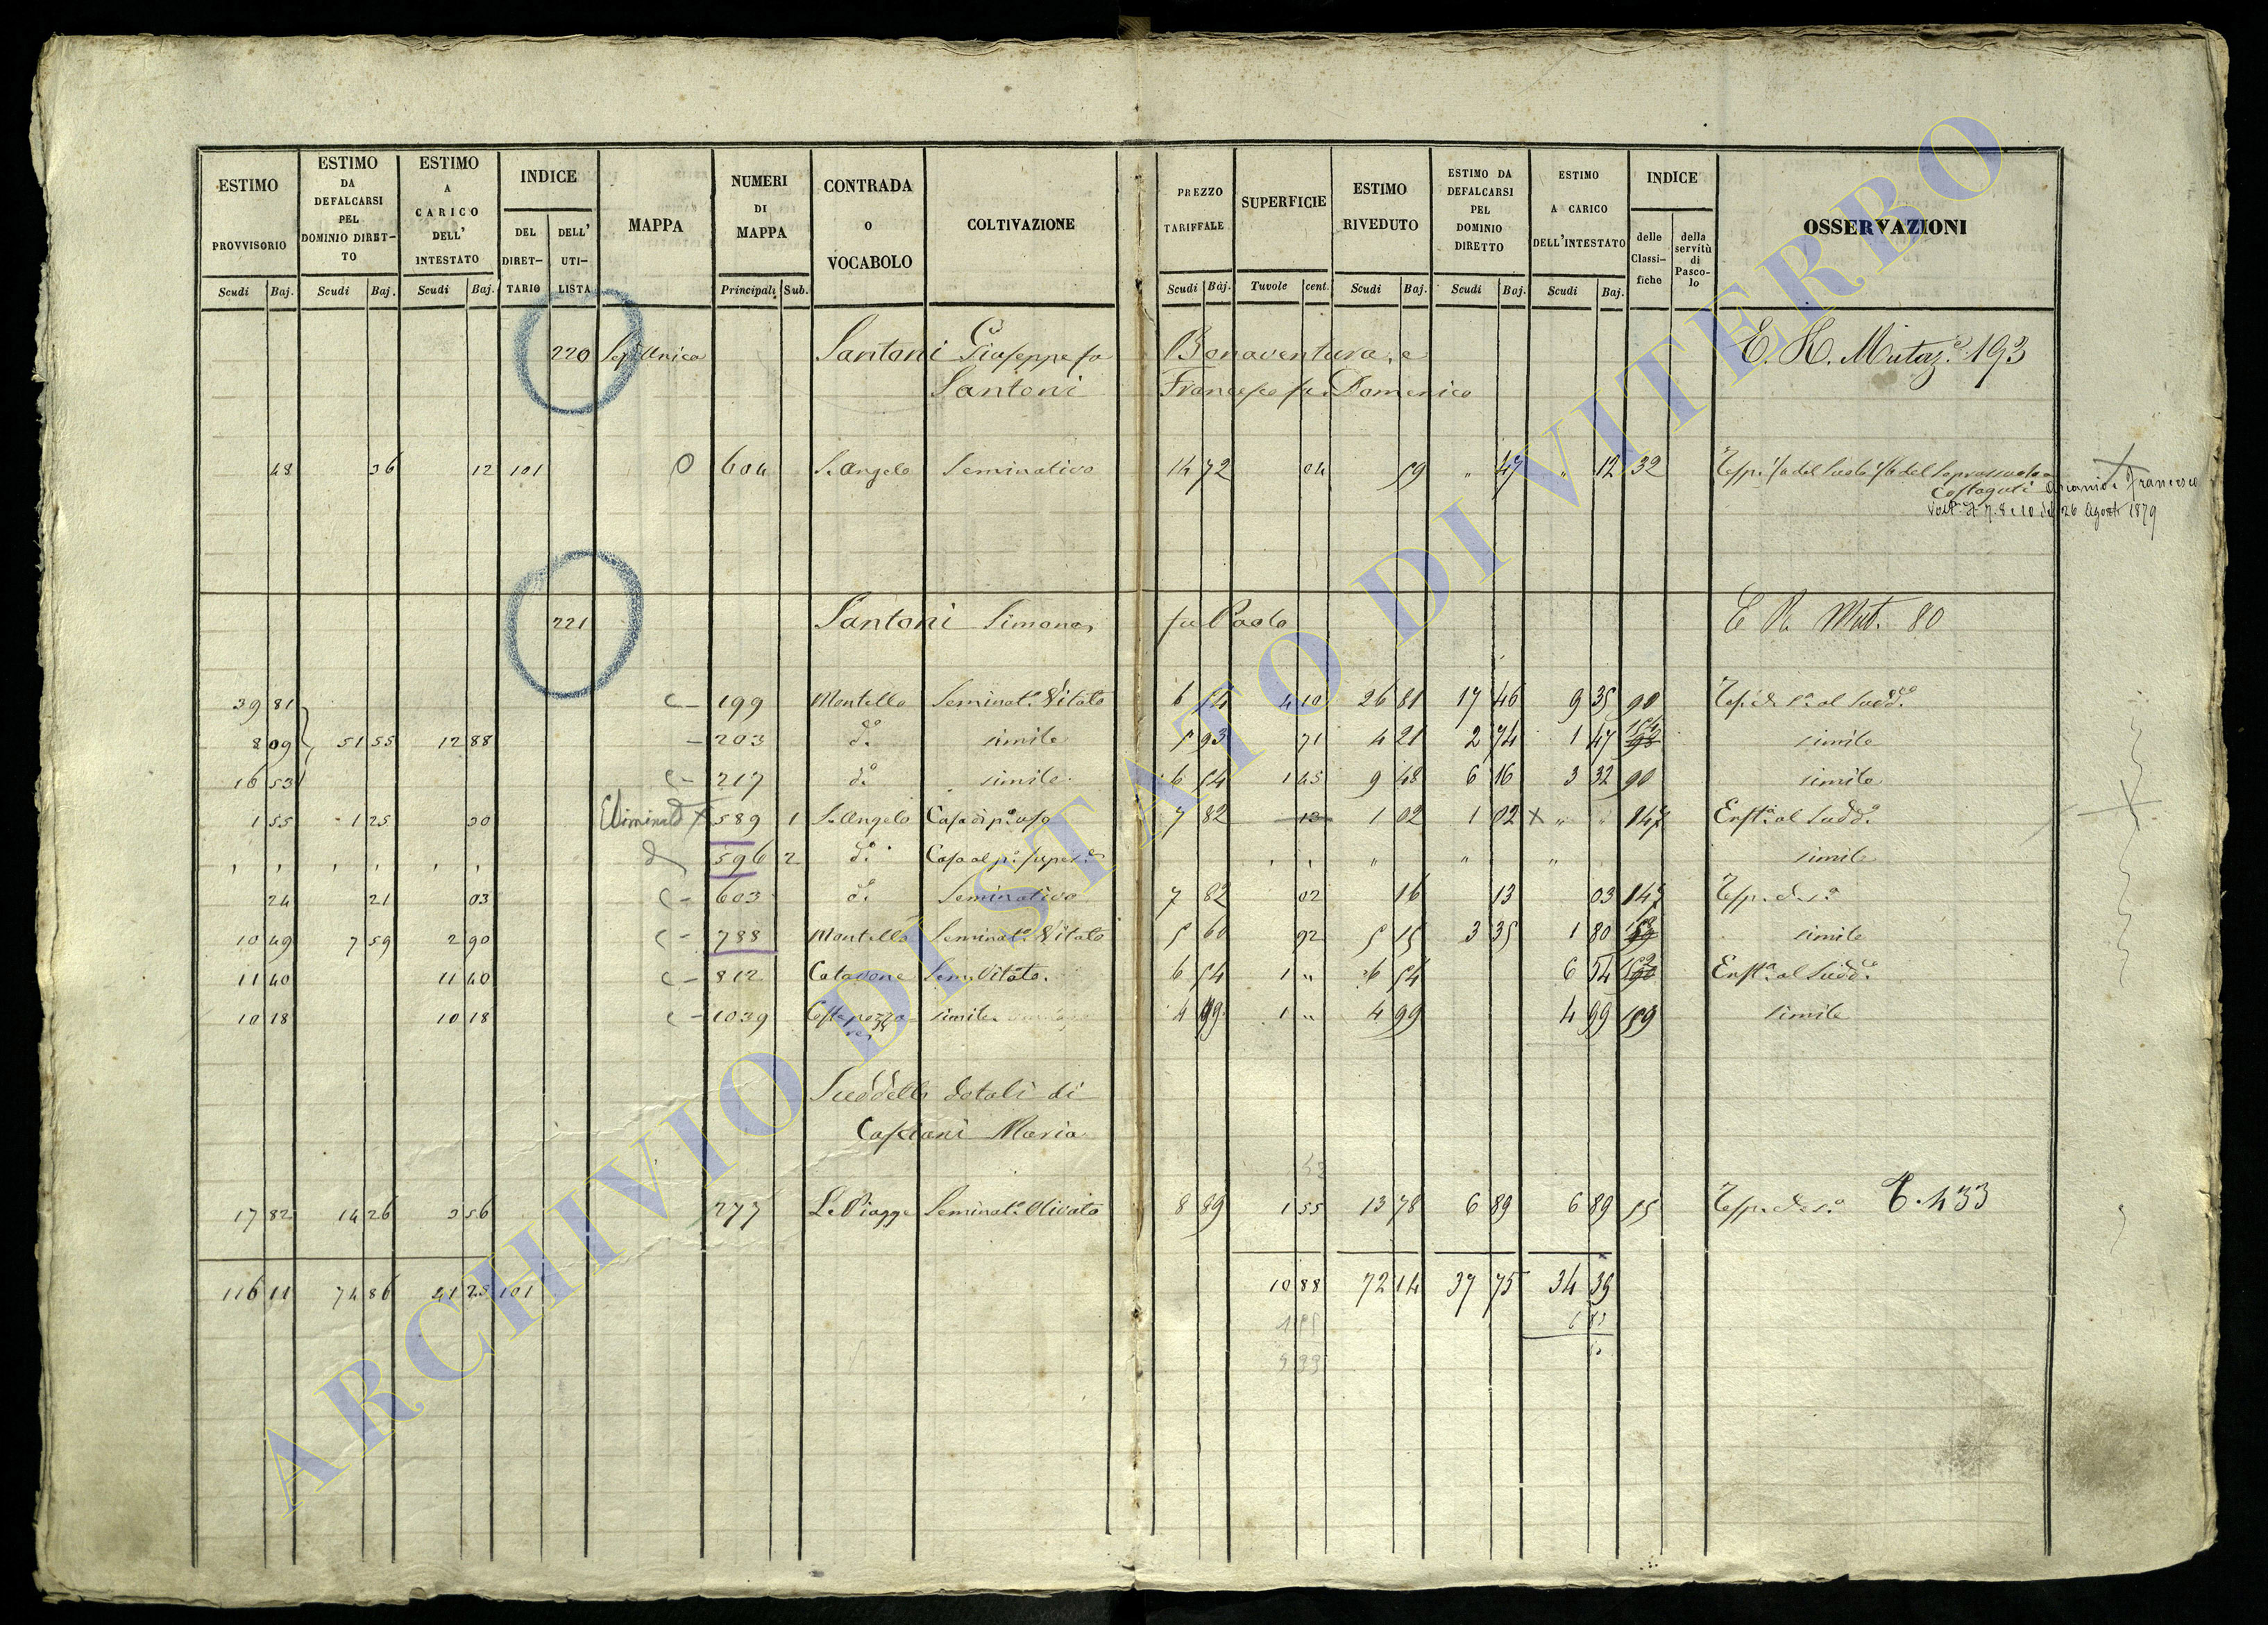 ESTIMO PROVVISORIO Scudi Baj.
ESTIMO DA DEFALCARSI PEL DOMINIO DIRET-TO Scudi Baj.
ESTIMO A CARICO DELL' INTESTATO Scudi Baj.
INDICE DEL DIRET-TARIO DELL' UTI-LISTA
MAPPA
NUMERI DI MAPPA Principali Sub.
CONTRADA o VOCABOLO
COLTIVAZIONE
PREZZO TARIFFALE Scudi Baj.
SUPERFICIE Tavole cent.
ESTIMO RIVEDUTO Scudi Baj.
ESTIMO DA DEFALCARSI PEL DOMINIO DIRETTO Scudi Baj.
ESTIMO A CARICO DELL'INTESTATO Scudi Baj.
INDICE delle Classi-fiche della servitù di Pasco-lo
OSSERVAZIONI
220 Unica Santoni Giuseppe fu Bonaventura, e E. R. Mutaz.e 193
Santoni Francesco fu Domenico
48 36 12 101 604 S. Angelo Seminativo 14 72 04 59 " 47 " 12 32
Costaguti Ascanio e Francesco
26 Agosto 1879
221 Santoni Simone fu Paolo E R Mut. 80
39 81 199 Montello Seminat.o Vitato 6 54 4 10 26 81 17 46 9 35 90
8 09 51 55 12 88 203 d.o simile 5 93 71 4 21 2 74 1 47 simile
16 53 217 d.o simile 6 54 1 45 9 48 6 16 3 32 90 simile
1 55 1 25 30 Eliminato X 589 1 S. Angelo Casa di p.o uso 7 82 13 1 02 1 02 X " " 147 Enft.a al Sudd.o
596 2 d.o " " " simile
24 21 03 603 d.o Seminativo 7 82 02 16 13 03 147
10 49 7 59 2 90 788 Montello Seminat.o Vitato 5 60 92 5 15 3 35 1 80 simile
11 40 11 40 812 Sem. Vitato. 6 54 1 " 6 54 6 54 Enft.a al Sudd.o
10 18 10 18 1039 simile 4 99 1 " 4 99 4 99 159 simile
Suddetto dotali di
Casciani Maria
17 82 14 26 3 56 277 Le Piagge Seminat.o Olivato 8 89 1 55 13 78 6 89 6 89 55 433
116 11 74 86 41 25 101 10 88 72 14 37 75 34 39
ARCHIVIO DI STATO DI VITERBO